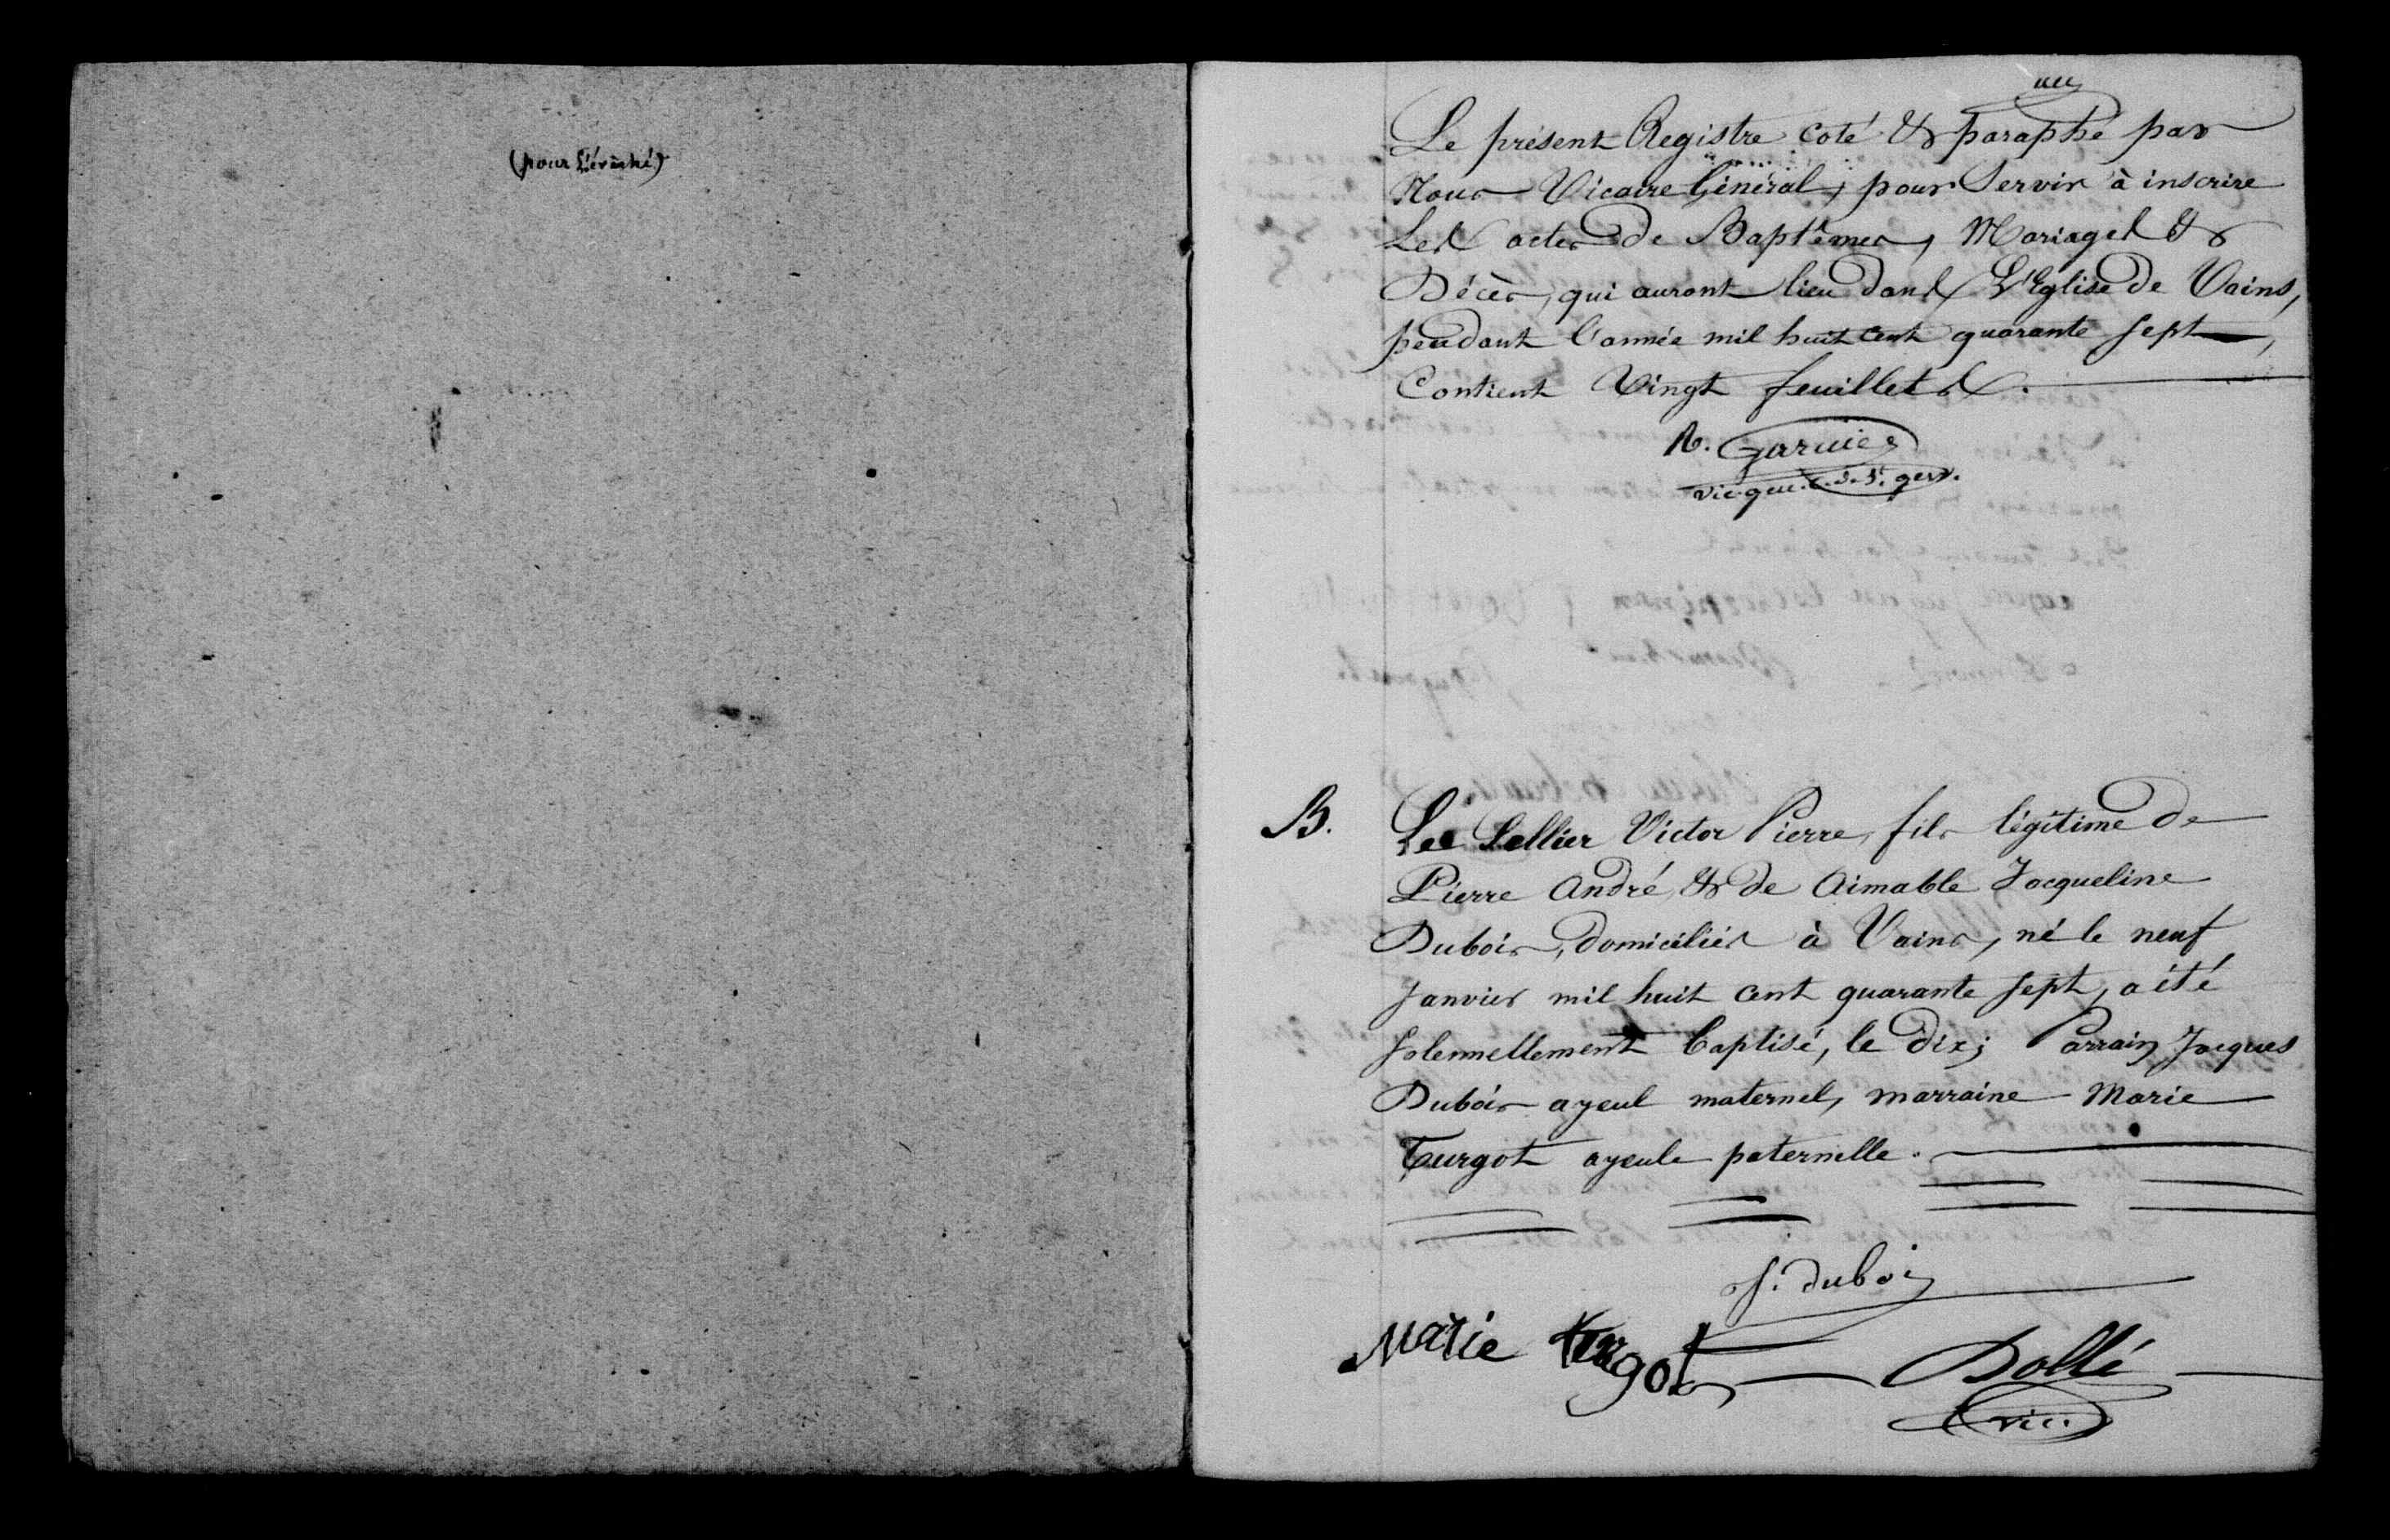 (pour L'évêché)
Le présent Registre coté & paraphé par
Nous Vicaire Général, pour Servir à inscrire
Les actes de Baptêmes, Mariages &
Décès, qui auront lieu dans L'Eglise de Vains,
pendant l'année mil huit cent quarante sept,
Contient Vingt feuillets.
vic. gen.
B. Le Sellier Victor Pierre, fils légitime de
Pierre André, & de Aimable Jacqueline
Dubois, domiciliés à Vains, né le neuf
Janvier mil huit cent quarante sept, a été
Solennellement baptisé, le dix; Parrain Jacques
Dubois ayeul maternel, marraine Marie
Turgot ayeule paternelle.
J. dubois
Marie turgot
Dolle
vic.